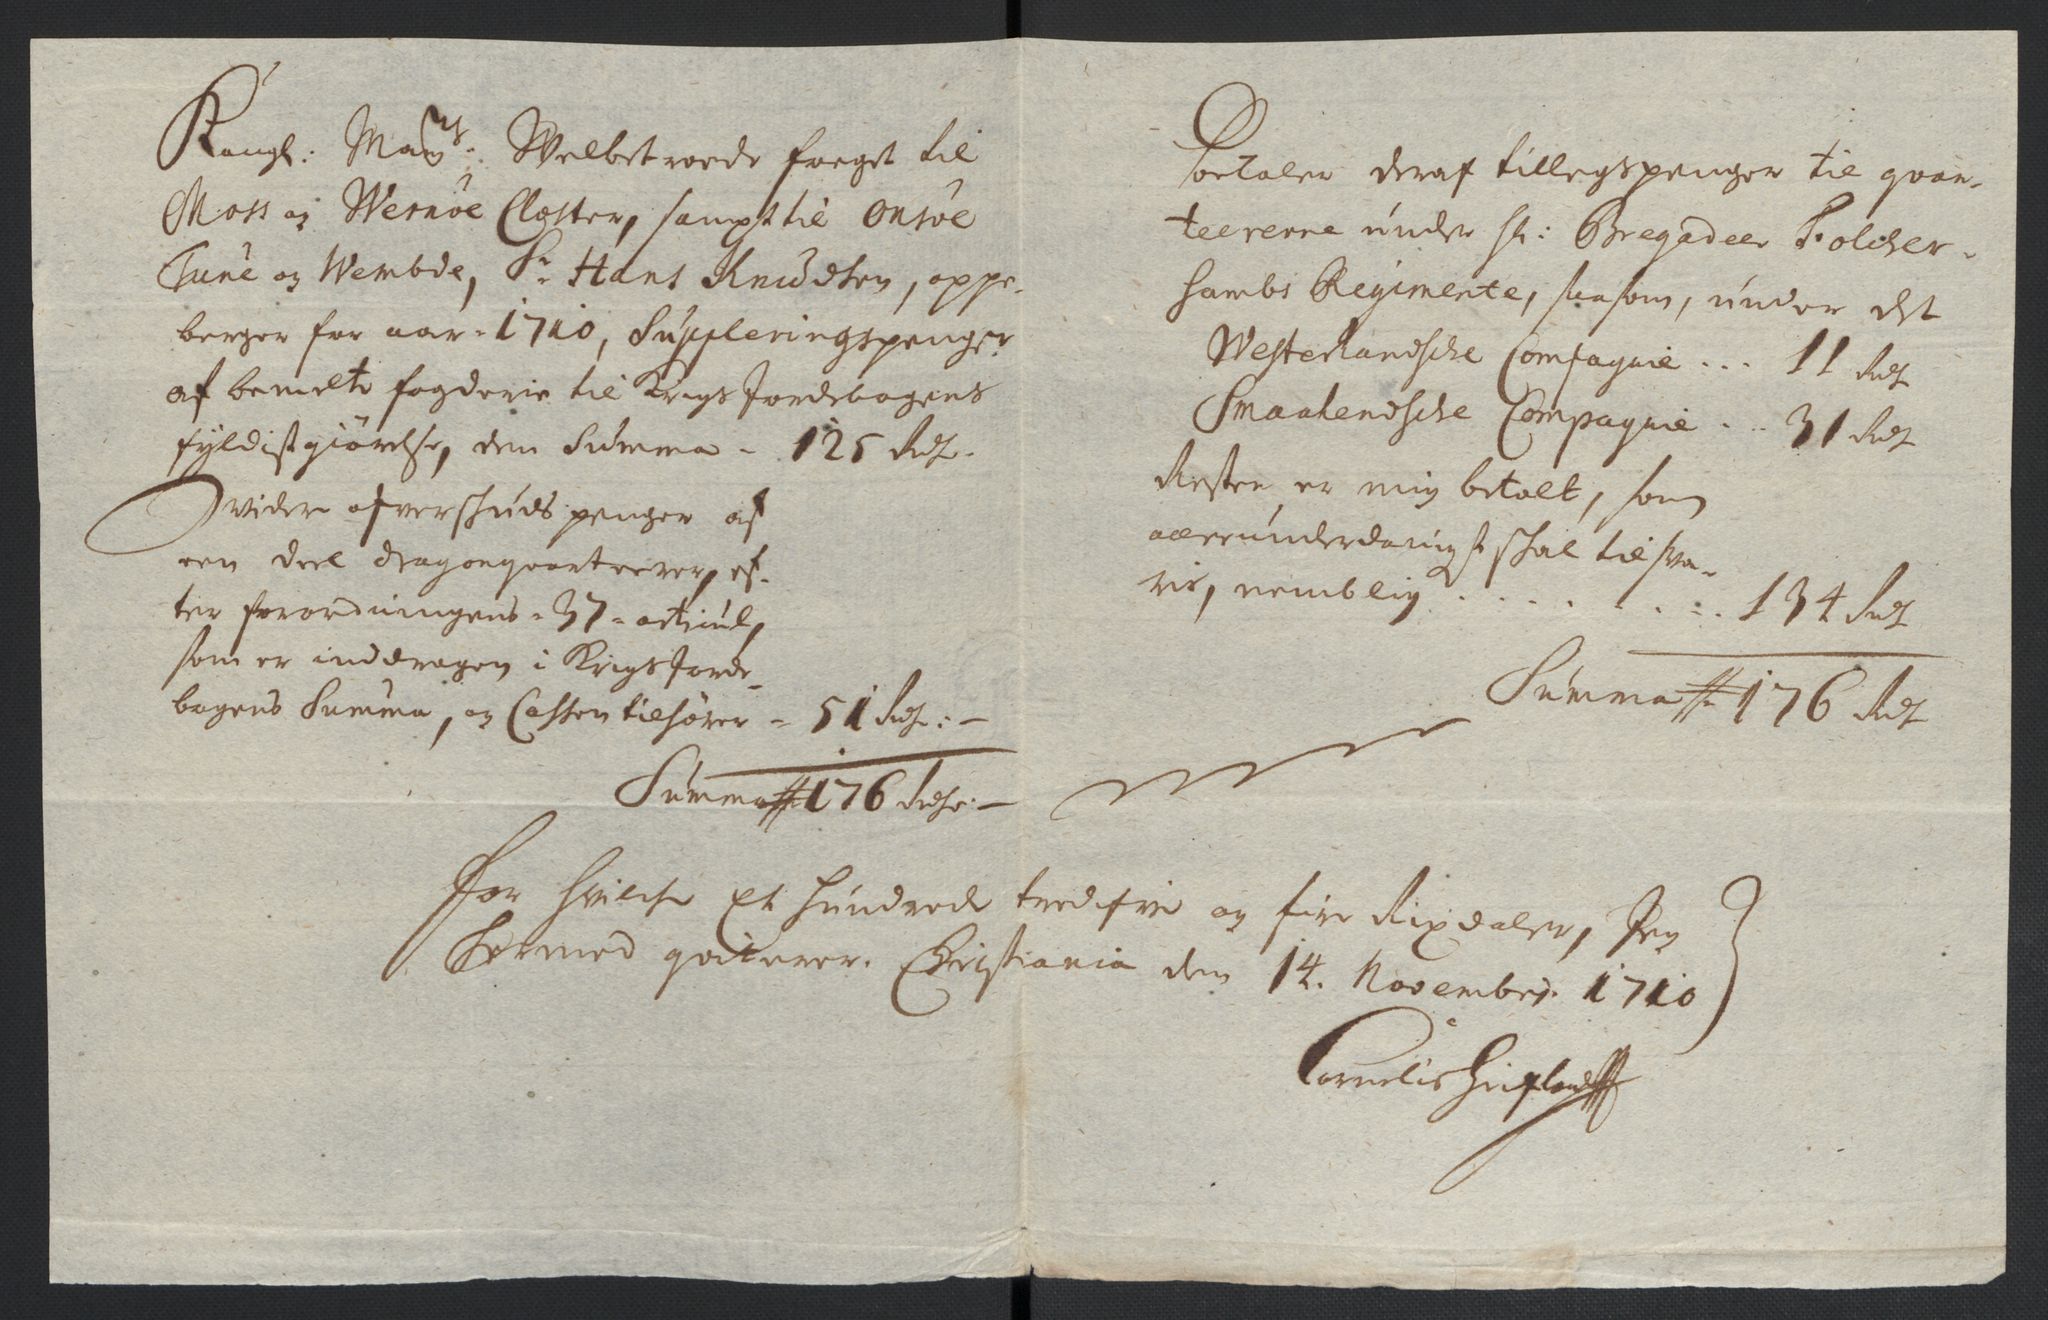 Kongl: Mayts: Welbetroede foeget til
Moss og Wernöe Closter, sampt til Onsöe
Tune og Wembde, Sr Hans Knudsen, oppe-
berger for aar 1710, Suppleringspenger
af bemelte fogderie til Krigs Jordebogens
fyldistgiörelse, den Summa - 125 Rdr.
Widere ofverskuds penger af
een deel dragonqvarterer, ef-
ter forordningens 37 articul,
som er inddragen i Krigs Jorde-
bogens Summa, og Cassen tilhörer - 51 Rdr:-
Summa 176 Rdr:-
Betaler deraf tillegspenger til qvar-
teererne under Hr: Bregadeer Folcker-
sambs Regimente, saasom, under det
Westerlandsche Compagnie ... 11 Rdr
Smaalendsche Compagnie ... 31 Rdr
Resten er mig betalt, som
allerunderdanigst skal tilsva-
ris, nemblig ......... 134 Rdr
Summa 176 Rdr
For hvilche Et hundrede tredifve og fire Rixdaler, Jeg
hermed qviterer. Christiania den 14. Novembris 1710
Cornelis